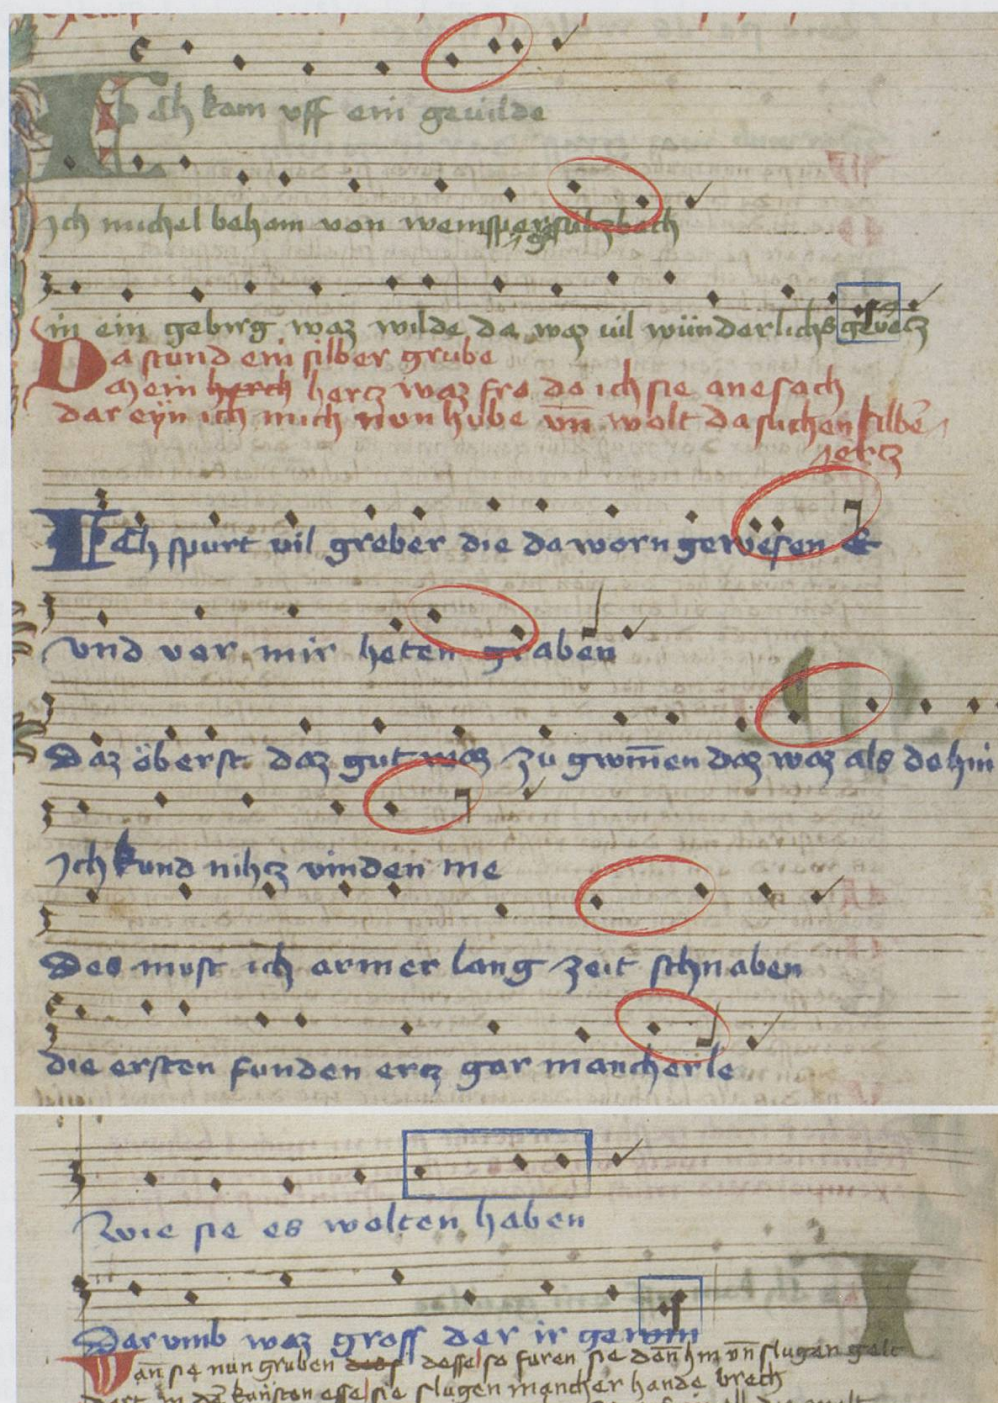 Ich kam vff ein geuilde
Ich michel behom von weinsperg sultzbach
in ein gebirg waz wilde da waz vil wünderlichs gevercz
Da stund ein silber grube
Mein herch hercz waz fro do ich sie anesach
dar eÿn ich mich nun hube vn̄ wolt da suchen silber
ercz
Ich spurt vil greber die da worn gewesen E
vnd vor mir heten graben
Daz öberst daz gut waz zu gwin̄en daz waz als dohin
Ich kund nihcz vinden me
des must ich armer lang zeit schnaben
die ersten funden ercz gar mancherle
Wie sie es wolten haben
Darumb waz gross der ir gewin
Wan̄ sie nun gruben desselso furen sie den̄ hin vn̄ slugen gelt
slugen mancher hande brech